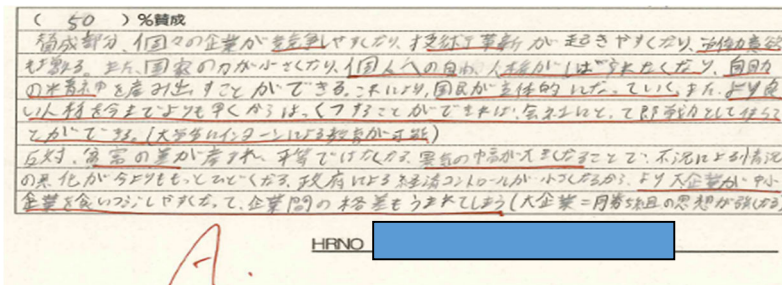 ( 50 )%賛成
賛成部分、個々の企業が競争しやすくなり、技術革新が起きやすくなり、労働力意欲
も 。また、国家の力が小さくなり、個人への自由、人権がしばられなくなり、自由
の 産み出すことができる。これにより、国民が主体的になっていく。また、より良
い人材を今までよりも早くからはっくつすることができれば、会社にとって即戦力として使うこ
とができる。(大学生にインターンによる教育が可能)
反対、 富の差が産まれ、平等ではなくなる。 が大きくなることで、不況による状況
の悪化が今よりももっとひどくなる。政府による経済コントロールが小さくなるから、より大企業が中小
企業を食いつぶしやすくなって、企業間の格差もうまれてしまう(大企業=円勝ち組の思想が強くなる)
A.
HRNO